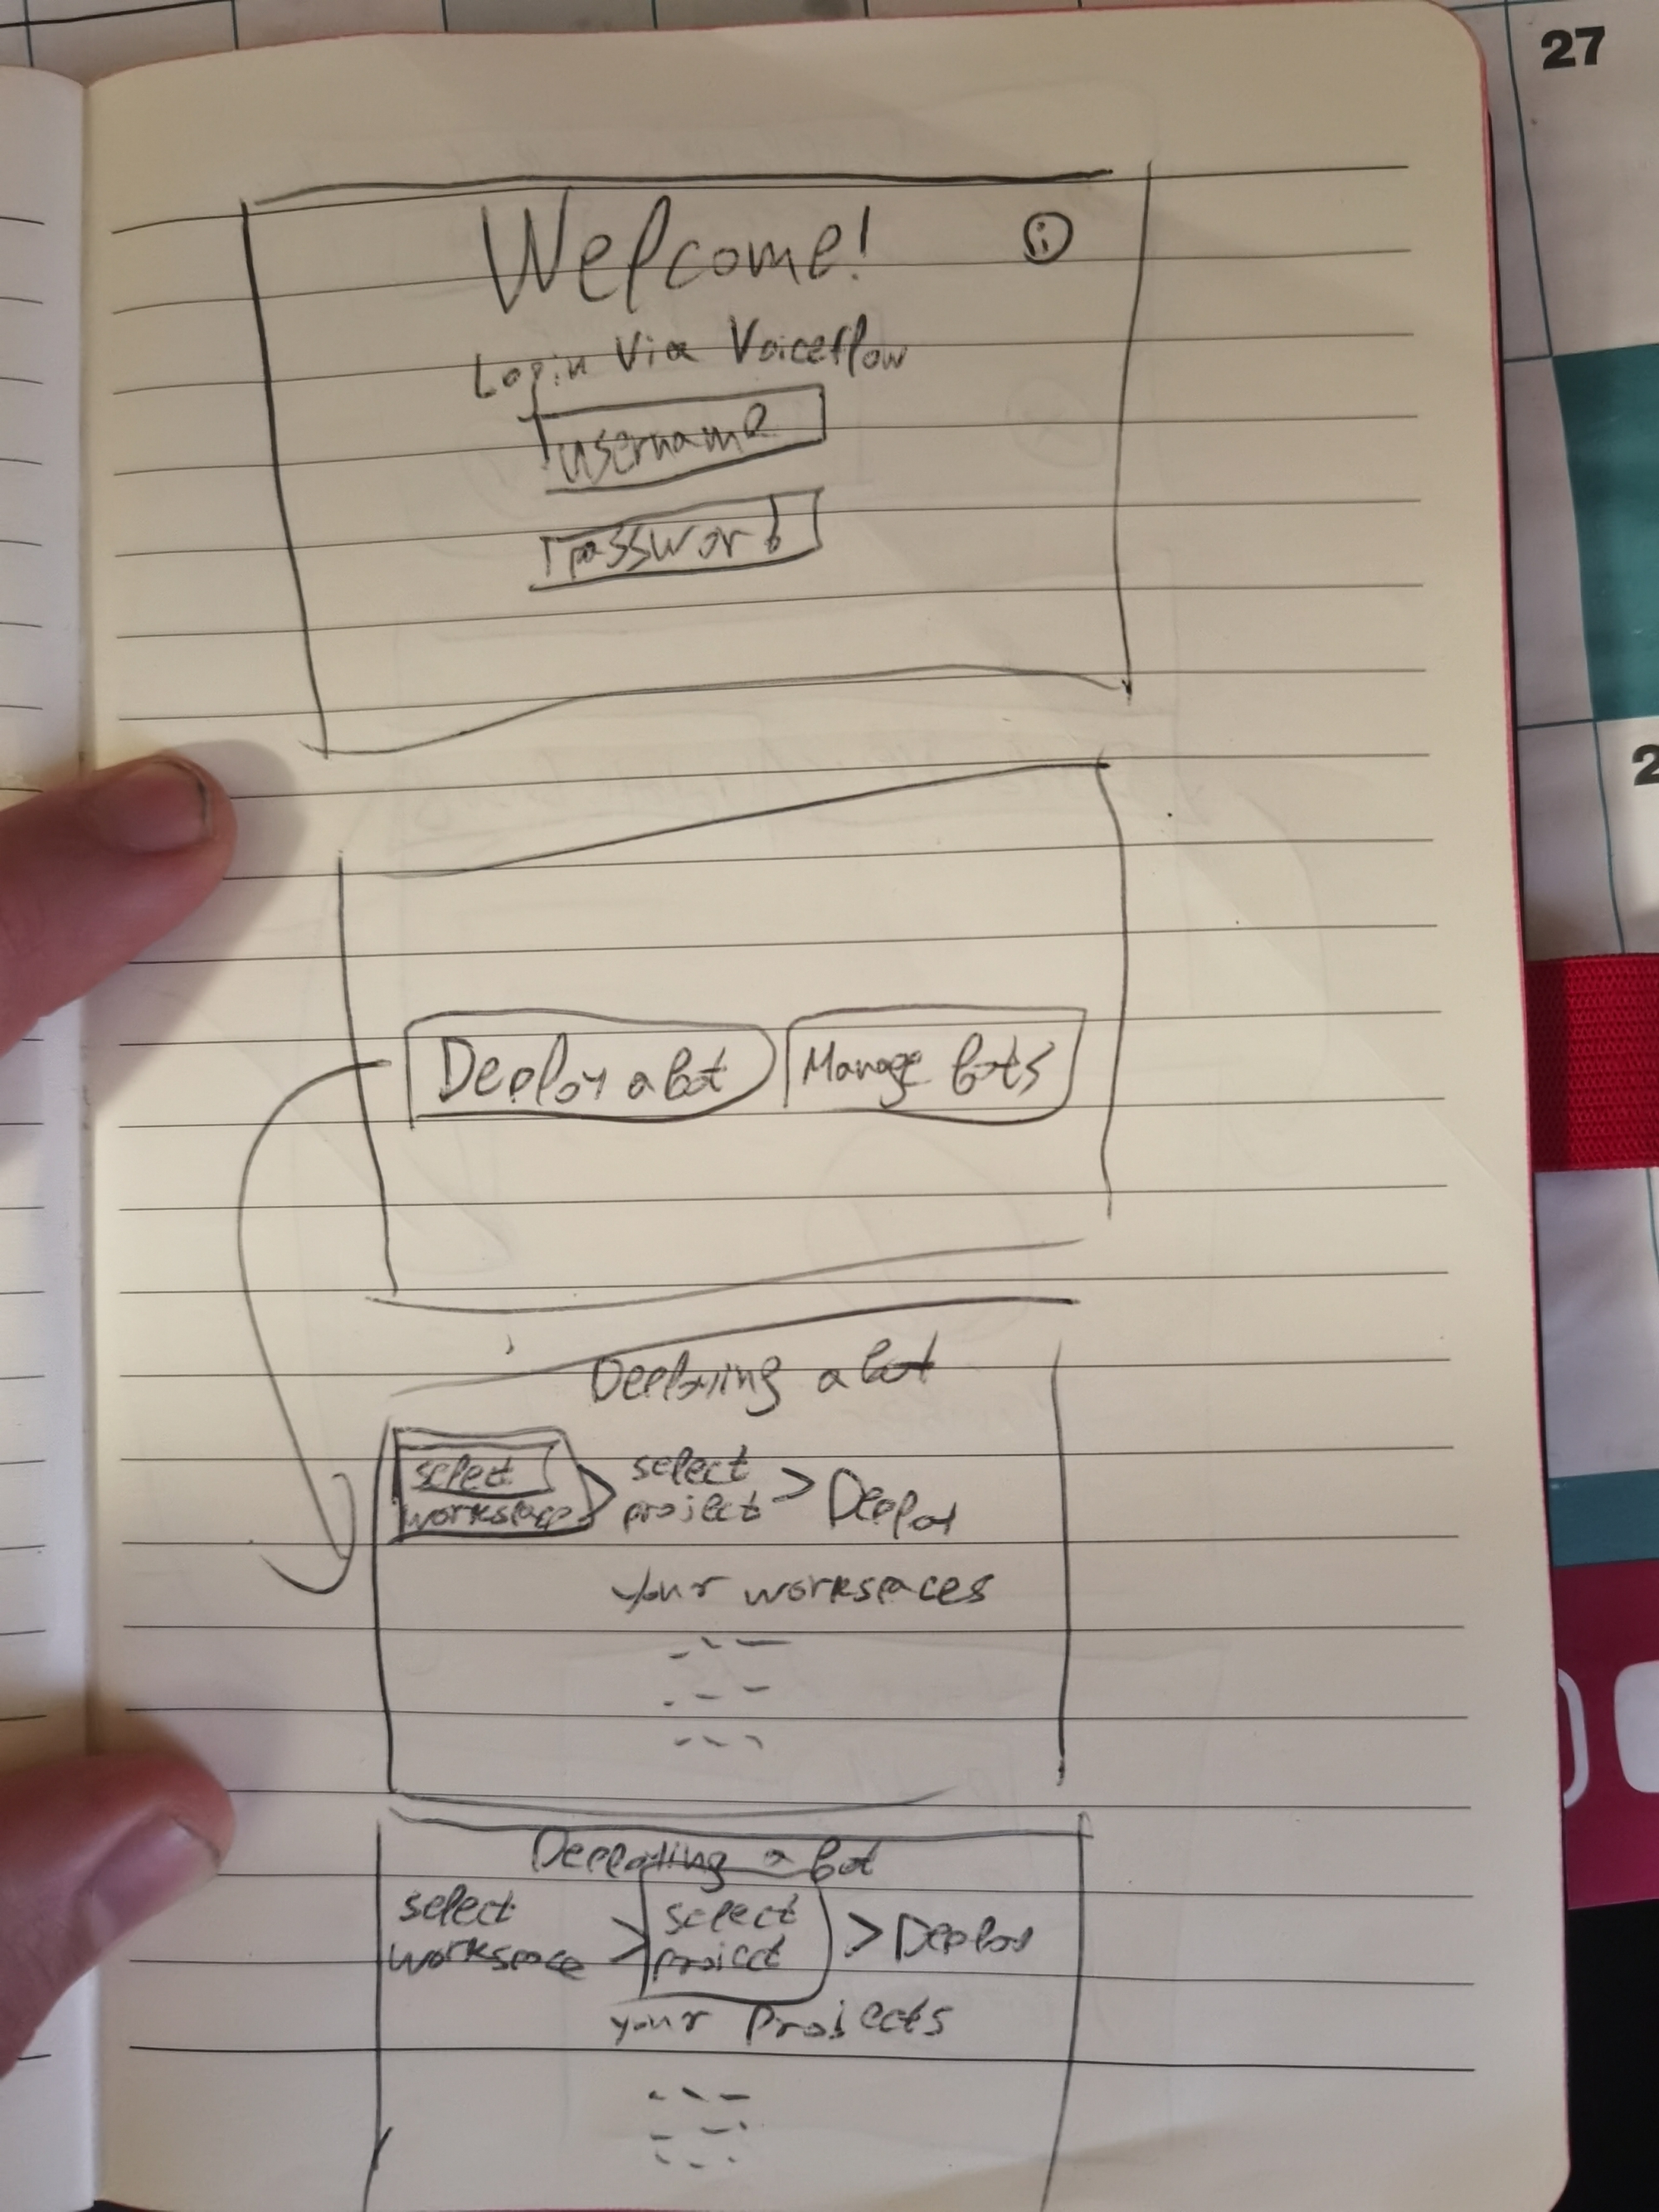 27
Welcome!
Login Via Voiceflow
username
password
2
Deploy a bot
Manage bots
Deploying a bot
select
workspace
>
select
project
>
Deploy
your workspaces
Deploying a bot
select
workspace
>
select
project
>
Deploy
your Projects